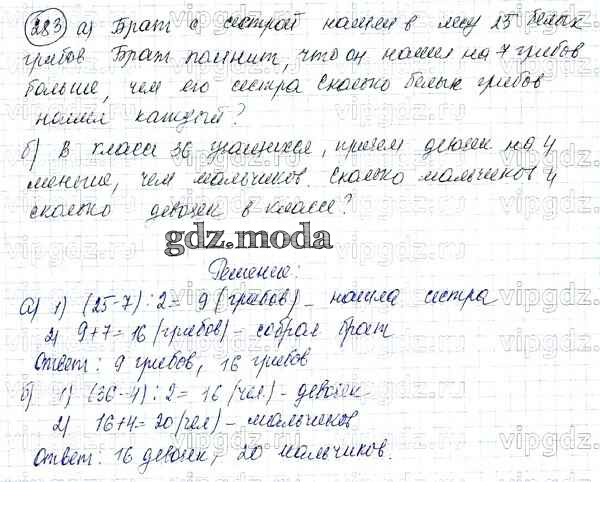 283 а) Брат с сестрой нашли в лесу 25 белых
грибов Брат помнит, что он нашел на 7 грибов
больше, чем его сестра Сколько белых грибов
нашел каждый?
б) В классе 36 учащихся, причем девочек на 4
меньше, чем мальчиков. Сколько мальчиков и
сколько девочек в классе?
gdz.moda
Решение:
а) 1) (25-7):2= 9 (грибов) - нашла сестра
2) 9+7=16 (грибов) - собрал брат
Ответ: 9 грибов, 16 грибов
б) 1) (36-4):2= 16 (чел) - девочек
2) 16+4=20 (чел) - мальчиков
Ответ: 16 девочек, 20 мальчиков.
vipgdz.ru